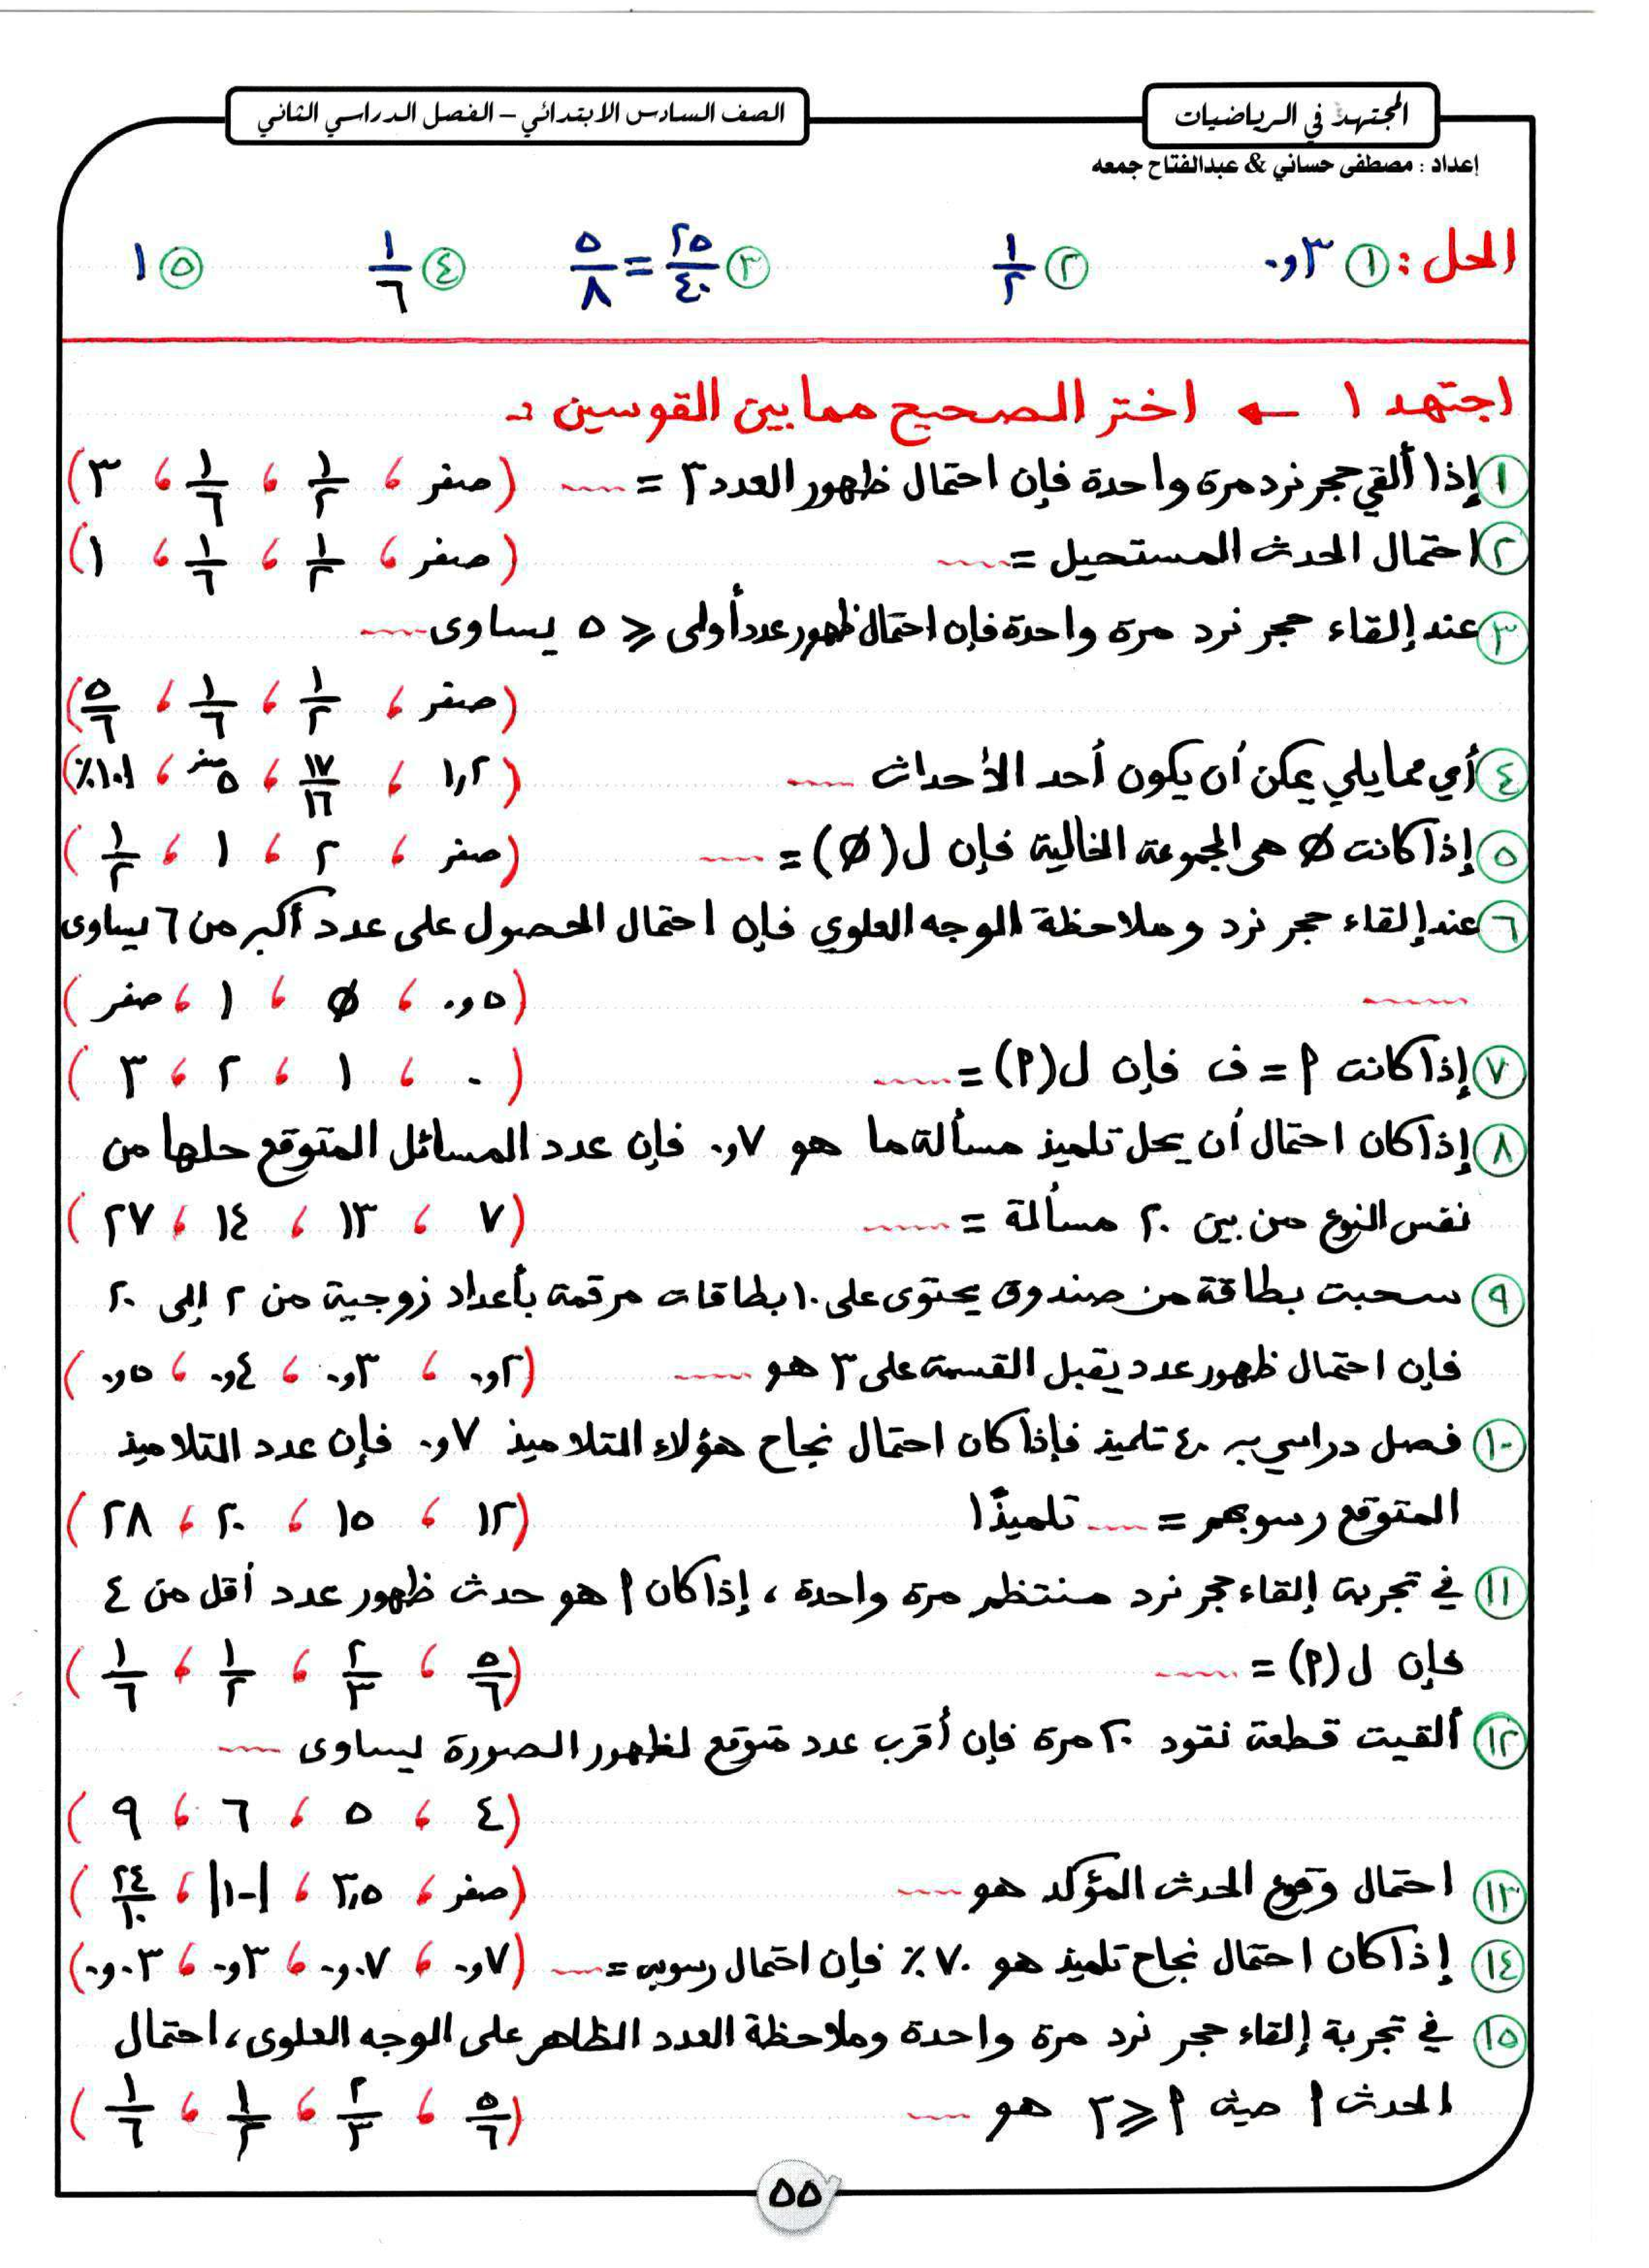 المجتهد في الرياضيات
الصف السادس الابتدائي – الفصل الدراسي الثاني
إعداد : مصطفى حساني & عبدالفتاح جمعه
الحل : ① ٠,٣ ② ١/٢ ③ ٢٥/٤٠ = ٥/٨ ④ ١/٦ ⑤ ١
اجتهد ١ ← اختر الصحيح مما بين القوسين :-
① إذا ألقي حجر نرد مرة واحدة فإن احتمال ظهور العدد ٣ = ..... (صفر ، ١/٢ ، ١/٦ ، ٣)
② احتمال الحدث المستحيل = ..... (صفر ، ١/٢ ، ١/٦ ، ١)
③ عند إلقاء حجر نرد مرة واحدة فإن احتمال ظهور عدد أولى ⩽ ٥ يساوى .....
(صفر ، ١/٢ ، ١/٦ ، ٥/٦)
④ أي مما يلي يمكن أن يكون أحد الأحداث ..... (١,٢ ، ١٧/١٦ ، صفر/٥ ، ١٠١٪)
⑤ إذا كانت Ø هى المجموعة الخالية فإن ل(Ø) = ..... (صفر ، ٢ ، ١ ، ١/٢)
⑥ عند إلقاء حجر نرد وملاحظة الوجه العلوي فإن احتمال الحصول على عدد أكبر من ٦ يساوى
..... (٠,٥ ، Ø ، ١ ، صفر)
⑦ إذا كانت ٩ = ف فإن ل(٩) = ..... (٠ ، ١ ، ٢ ، ٣)
⑧ إذا كان احتمال أن يحل تلميذ مسألة ما هو ٠,٧ فإن عدد المسائل المتوقع حلها من
نفس النوع من بين ٢٠ مسألة = ..... (٧ ، ١٣ ، ١٤ ، ٢٧)
⑨ سحبت بطاقة من صندوق يحتوى على ١٠ بطاقات مرقمة بأعداد زوجية من ٢ إلى ٢٠
فإن احتمال ظهور عدد يقبل القسمة على ٣ هو ..... (٠,٢ ، ٠,٣ ، ٠,٤ ، ٠,٥)
⑩ فصل دراسي به ٤٠ تلميذ فإذا كان احتمال نجاح هؤلاء التلاميذ ٠,٧ فإن عدد التلاميذ
المتوقع رسوبهم = ..... تلميذًا (١٢ ، ١٥ ، ٢٠ ، ٢٨)
⑪ في تجربة إلقاء حجر نرد منتظم مرة واحدة ، إذا كان ٩ هو حدث ظهور عدد أقل من ٤
فإن ل(٩) = ..... (٥/٦ ، ٢/٣ ، ١/٢ ، ١/٦)
⑫ ألقيت قطعة نقود ٢٠ مرة فإن أقرب عدد متوقع لظهور الصورة يساوى .....
(٤ ، ٥ ، ٦ ، ٩)
⑬ احتمال وقوع الحدث المؤكد هو ..... (صفر ، ٣,٥ ، |-١| ، ٢٤/١٠)
⑭ إذا كان احتمال نجاح تلميذ هو ٧٠٪ فإن احتمال رسوبه = ..... (٠,٧ ، ٠,٠٧ ، ٠,٣ ، ٠,٠٣)
⑮ في تجربة إلقاء حجر نرد مرة واحدة وملاحظة العدد الظاهر على الوجه العلوى ، احتمال
الحدث ٩ حيث ٩ ⩾ ٣ هو ..... (٥/٦ ، ٢/٣ ، ١/٢ ، ١/٦)
٥٥